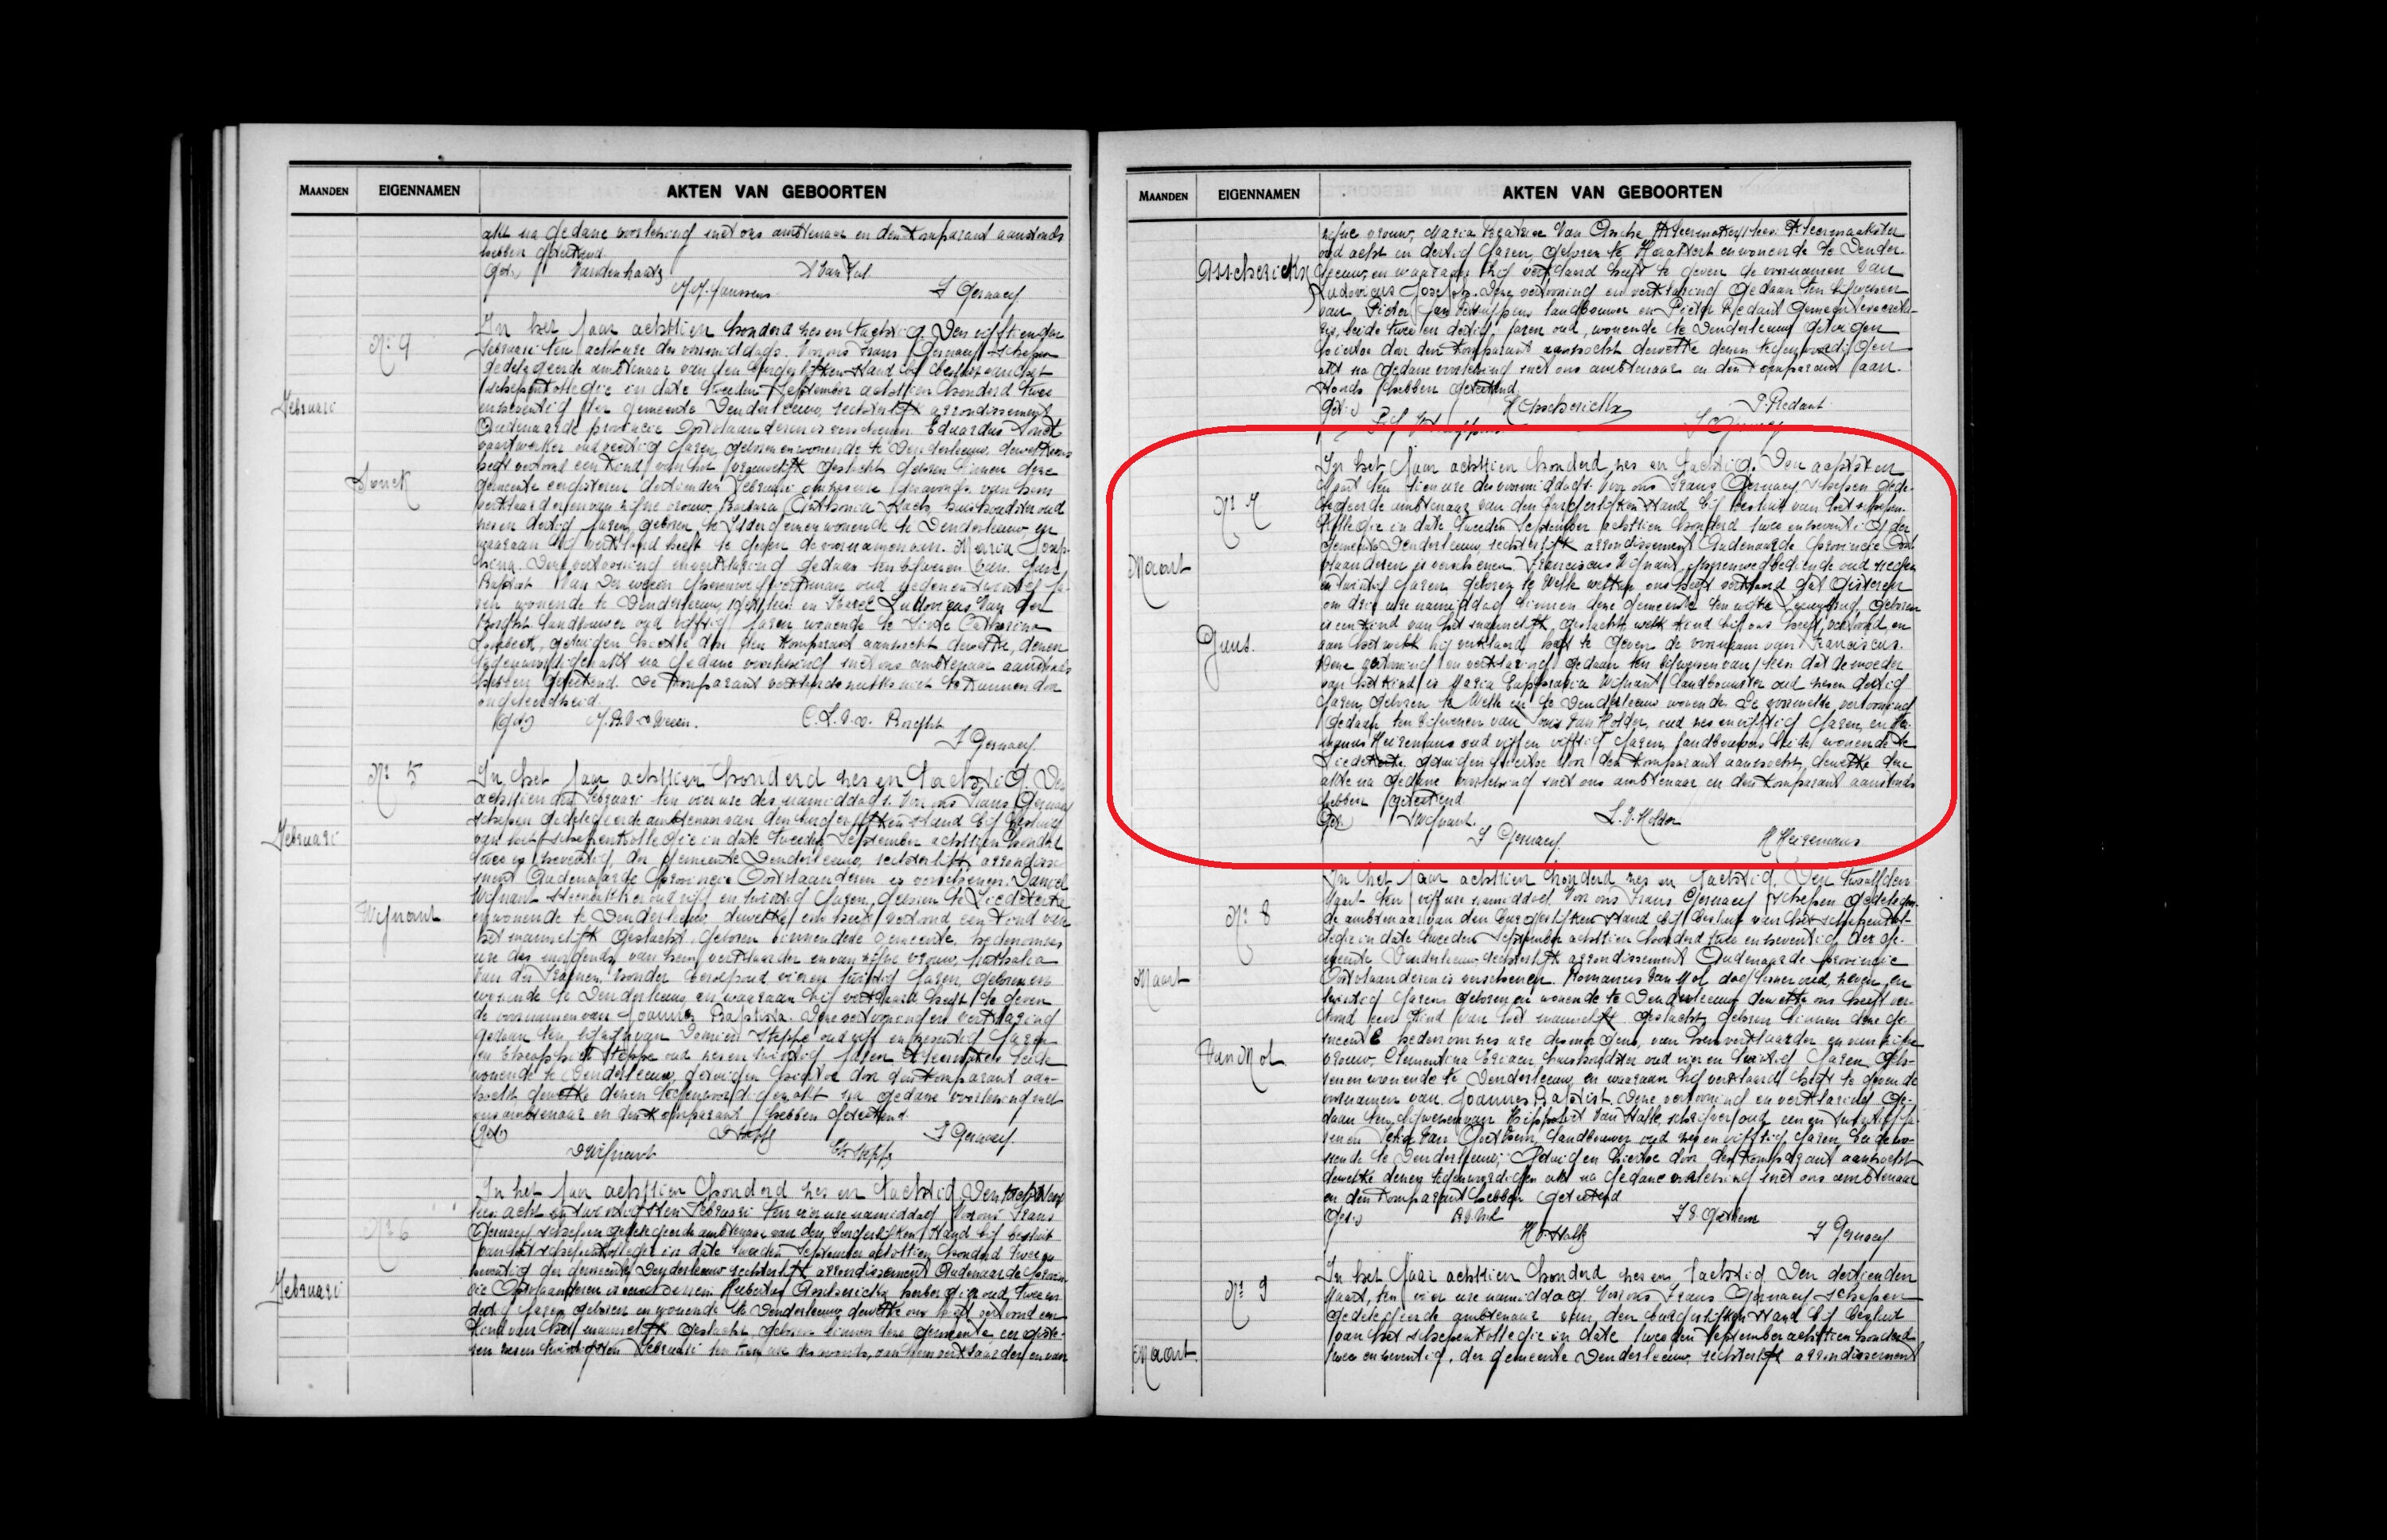 MAANDEN EIGENNAMEN AKTEN VAN GEBOORTEN
akt na gedane voorlezing met ons ambtenaar en den komparant aanstonds
hebben geteekend.
Get. Vandenhaute A Van Tul
M. Janssens F Gernaey
N: 4
In het jaar achttien honderd zes en tachtig. Den vijftienden
Februari ten acht ure des voormiddags. Voor ons Frans Gernaey Schepen
gedelegeerde ambtenaar van den burgerlijken stand bij besluit van het
schepenkollegie in date tweeden September achttien honderd twee
Februari
en seventig der gemeente Denderleeuw, rechterlijk arrondissement
Oudenaarde provincie Oostvlaanderen is verschenen Eduardus Sonck
oud veertig jaren, geboren en wonende te Denderleeuw, dewelke ons
heeft vertoond een kind van het vrouwelijk geslacht geboren binnen deze
Sonck
gemeente eergisteren dertienden Februari om ure des avonds van hem
verklaarder en van zijne vrouw, Barbara Anthonia huishoudster oud
zes en dertig jaren, geboren te Idergem en wonende te Denderleeuw, en
waaraan hij verklaard heeft te geven de voornamen van Maria Josep-
hina. Deze vertooning en verklaring gedaan ten bijwezen van
Baptist Van Der Weeen ijzerenwegwerkman oud negen en twintig ja-
ren wonende te Denderleeuw, en Karel Ludovicus Van der
Borght landbouwer oud vijftig jaren wonende te Sinte Catharina
Lombeek, getuigen hiertoe door den komparant aanzocht dewelke, dezen
tegenwoordigen akt na gedane voorlezing met ons ambtenaar aanstonds
hebben geteekend. De komparant verklaarde zulks niet te kunnen door
ongeleerdheid.
(Get) J. B. V. D. Weeen. C. L. V. D. Borght
F Gernaey
N: 5
In het jaar achttien honderd zes en tachtig. Den
achttienden Februari ten vier ure des namiddags. Voor ons Frans Gernaey
schepen gedelegeerde ambtenaar van den burgerlijken stand bij besluit
Februari
van het schepenkollegie in date tweeden September achttien honderd
twee en seventig, der gemeente Denderleeuw, rechterlijk arrondisse-
ment Oudenaarde Provincie Oostvlaanderen is verschenen Daniel
Wijnant oud vijf en twintig jaren, geboren te Liedekerke
Wijnant
en wonende te Denderleeuw, dewelke ons heeft vertoond een kind van
het mannelijk geslacht, geboren binnen deze gemeente, heden om zes
ure des morgends van hem verklaarder en van zijne vrouw, Nathalia
Van der zonder beroep oud vier en twintig jaren, geboren en
wonende te Denderleeuw, en waaraan hij verklaard heeft te geven
de voornamen van Joannes Baptista. Deze vertooning en verklaring
gedaan ten bijzijn van Domien Steppe oud vijf en seventig jaren
en Steppe oud zes en twintig jaren beide
wonende te Denderleeuw, getuigen hiertoe door den komparant aan-
zocht dewelke dezen tegenwoordigen akt na gedane voorlezing met
ons ambtenaar en den komparant hebben geteekend.
(Get) D Steppe F Gernaey
D Wijnant Steppe
N: 6
In het jaar achttien honderd zes en tachtig. Den
acht en twintigsten Februari ten vier ure namiddag Voor ons Frans
Gernaey schepen gedelegeerde ambtenaar van den burgerlijken stand bij besluit
van het schepenkollegie in date tweeden September achttien honderd twee en
seventig der gemeente Denderleeuw rechterlijk arrondissement Oudenaarde Provin-
Februari
cie Oostvlaanderen is verschenen Hubertus Asscherickx herbergier oud twee en
dertig jaren geboren en wonende te Denderleeuw dewelke ons heeft vertoond een
kind van het mannelijk geslacht, geboren binnen deze gemeente eergiste-
ren zes en twintigsten Februari ten tien ure des avonds, van hem verklaarder en van
MAANDEN EIGENNAMEN AKTEN VAN GEBOORTEN
zijne vrouw, Maria Van Assche
oud acht en dertig jaren, geboren te Haaltert en wonende te Dender-
Asscherickx
leeuw, en waaraan hij verklaard heeft te geven de voornamen van
Ludovicus Joseph. Deze vertooning en verklaring gedaan ten bijwezen
van Pieter Jan landbouwer en Pieter Redant Gemeentesecreta-
ris, beide twee en dertig jaren oud, wonende te Denderleeuw getuigen
hiertoe door den komparant aanzocht dewelke dezen tegenwoordigen
akt na gedane voorlezing met ons ambtenaar en den komparant aan-
stonds hebben geteekend.
Get. H Asscherickx P. Redant
F Gernaey
N: 7
In het jaar achttien honderd zes en tachtig. Den achtsten
Maart ten tien ure des voormiddags. Voor ons Frans Gernaey, schepen gede-
legeerde ambtenaar van den burgerlijken stand bij besluit van het schepen-
kollegie in date tweeden September achttien honderd twee en seventig der
gemeente Denderleeuw, rechterlijk arrondissement Oudenaarde Provincie Oost-
Maart
vlaanderen is verschenen Franciscus Wijnant, ijzerenwegbediende oud negen
en twintig jaren geboren te Welle welken ons heeft verklaard dat gisteren
om drie ure namiddag binnen deze gemeente ten wijke Leeuwbrug, geboren
Guns.
is een kind van het mannelijk geslacht, welk kind hij ons heeft vertoond, en
aan hetwelk hij verklaard heeft te geven de voornaam van Franciscus.
Deze vertooning en verklaring gedaan ten bijwezen van, lees: dat de moeder
van het kind is Maria Euphrasia Wijnant landbouwster oud zes en dertig
jaren, geboren te Welle en te Denderleeuw wonende. De voormelde vertooning
gedaan ten bijwezen van Louis Van Holder, oud zes en vijftig jaren, en Ha-
manus Heiremans oud vijf en vijftig jaren, landbouwers beide wonende te
Liedekerke, getuigen hiertoe door den komparant aanzocht, dewelke deze
akte na gedane voorlezing met ons ambtenaar en den komparant aanstonds
hebben geteekend.
Get. F Wijnant. L. V. Holder
F Gernaey H Heiremans
N: 8
In het jaar achttien honderd zes en tachtig. Den twaalfden
Maart ten vijf ure namiddag. Voor ons Frans Gernaey schepen gedelegeer-
de ambtenaar van den burgerlijken stand bij besluit van het schepenkol-
legie in date tweeden September achttien honderd twee en seventig der ge-
meente Denderleeuw, rechterlijk arrondissement Oudenaarde provincie
Maart
Oostvlaanderen is verschenen Romanus Van Mol dagloner oud, zeven en
twintig jaren geboren en wonende te Denderleeuw dewelke ons heeft ver-
toond een kind van het mannelijk geslacht, geboren binnen deze ge-
meente heden om zes ure des morgens, van hem verklaarder en van zijne
Van Mol
vrouw, Clementina huishoudster oud vier en twintig jaren, gebo-
ren en wonende te Denderleeuw, en waaraan hij verklaard heeft te geven de
voornamen van Joannes Baptist. Deze vertooning en verklaring ge-
daan ten bijwezen van Hippoliet Van Halle schrijver oud een en twintig ja-
ren en Van Oosthem, landbouwer oud zes en vijftig jaren beide wo-
nende te Denderleeuw, Getuigen hiertoe door den komparant aanzocht
dewelke dezen tegenwoordigen akt na gedane voorlezing met ons ambtenaar
en den komparant hebben geteekend
Get. R V. Mol
H V. Halle F Gernaey
N: 9
In het jaar achttien honderd zes en tachtig. Den dertienden
Maart, ten vier ure namiddag Voor ons Frans Gernaey schepen
gedelegeerde ambtenaar van den burgerlijken stand bij besluit
van het schepenkollegie in date tweeden September achttien honderd
Maart.
twee en seventig, der gemeente Denderleeuw, rechterlijk arrondissement